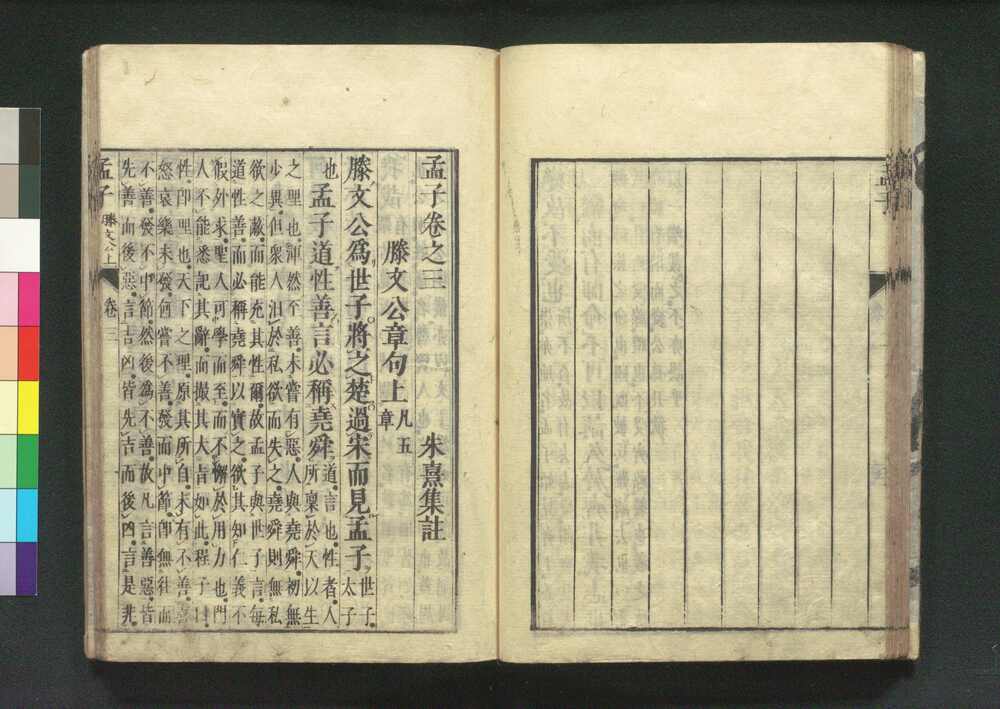 孟子卷之三　　朱熹集註
滕文公章句上 凡五章
滕文公爲世子將之楚過宋而見孟子 世子太子
也孟子道性善言必稱堯舜 道言也性者人所稟於天以生
之理也渾然至善未嘗有惡人與堯舜初無
少異但衆人汩於私欲而失之堯舜則無私
欲之蔽而能充其性爾故孟子與世子言每
道性善而必稱堯舜以實之欲其知仁義不
假外求聖人可學而至而不懈於用力也門
人不能悉記其辭而撮其大旨如此程子曰
性卽理也天下之理原其所自未有不善喜
怒哀樂未發何嘗不善發而中節卽無往而
不善發不中節然後爲不善故凡言善惡皆
先善而後惡言吉凶皆先吉而後凶言是非
孟子 滕文公上 卷三